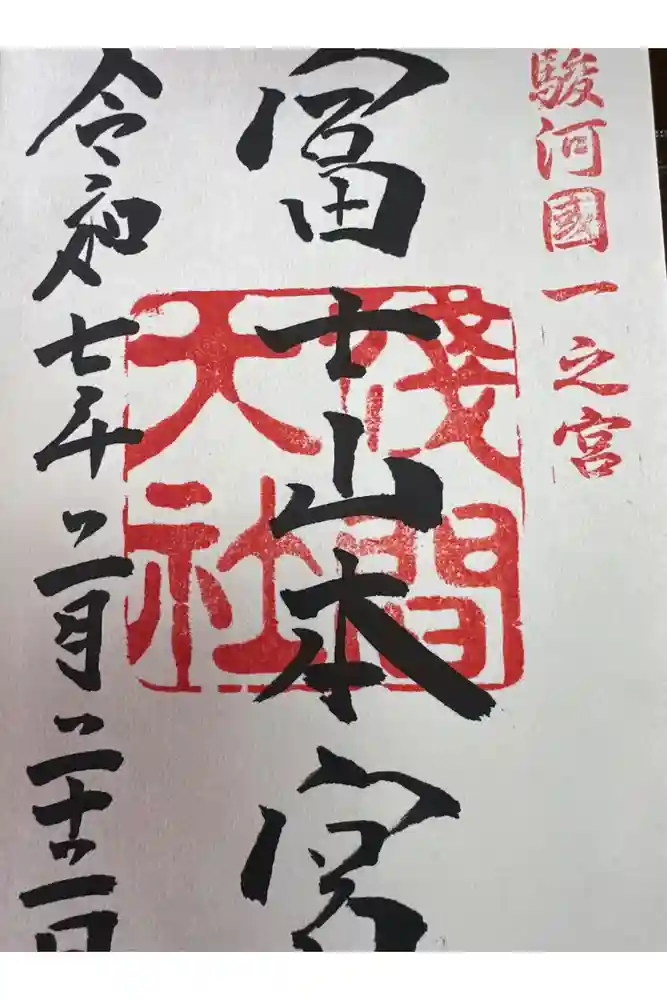 駿河國一之宮
冨士山本宮
淺間大社
令和七年二月二十二日